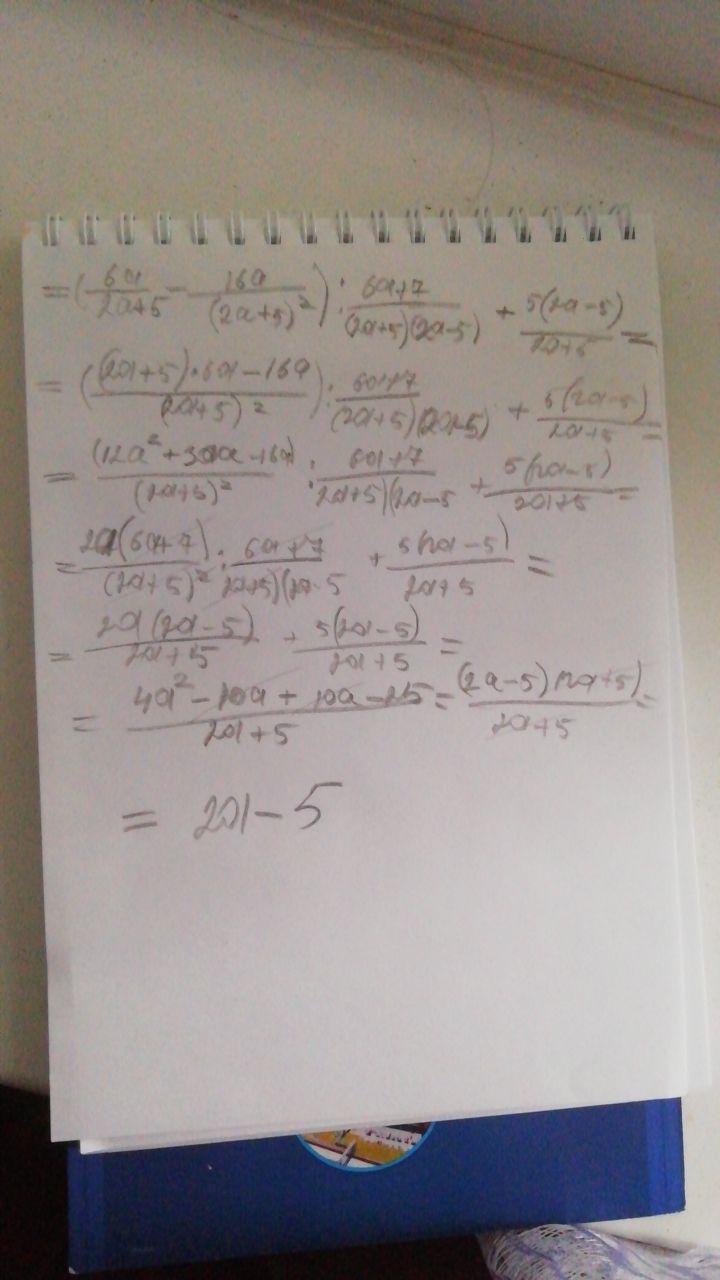 = (6a/2a+5 - 16a/(2a+5)²) : 6a+7/(2a+5)(2a-5) + 5(2a-5)/2a+5 =
= ((2a+5)·6a-16a/(2a+5)²) : 6a+7/(2a+5)(2a-5) + 5(2a-5)/2a+5 =
= (12a²+30a-16a)/(2a+5)² : 6a+7/2a+5)(2a-5 + 5(2a-5)/2a+5 =
= 2a(6a+7)/(2a+5)² : 6a+7/2a+5)(2a-5 + 5(2a-5)/2a+5 =
= 2a(2a-5)/2a+5 + 5(2a-5)/2a+5 =
= 4a²-10a+10a-25/2a+5 = (2a-5)(2a+5)/2a+5 =
= 2a-5